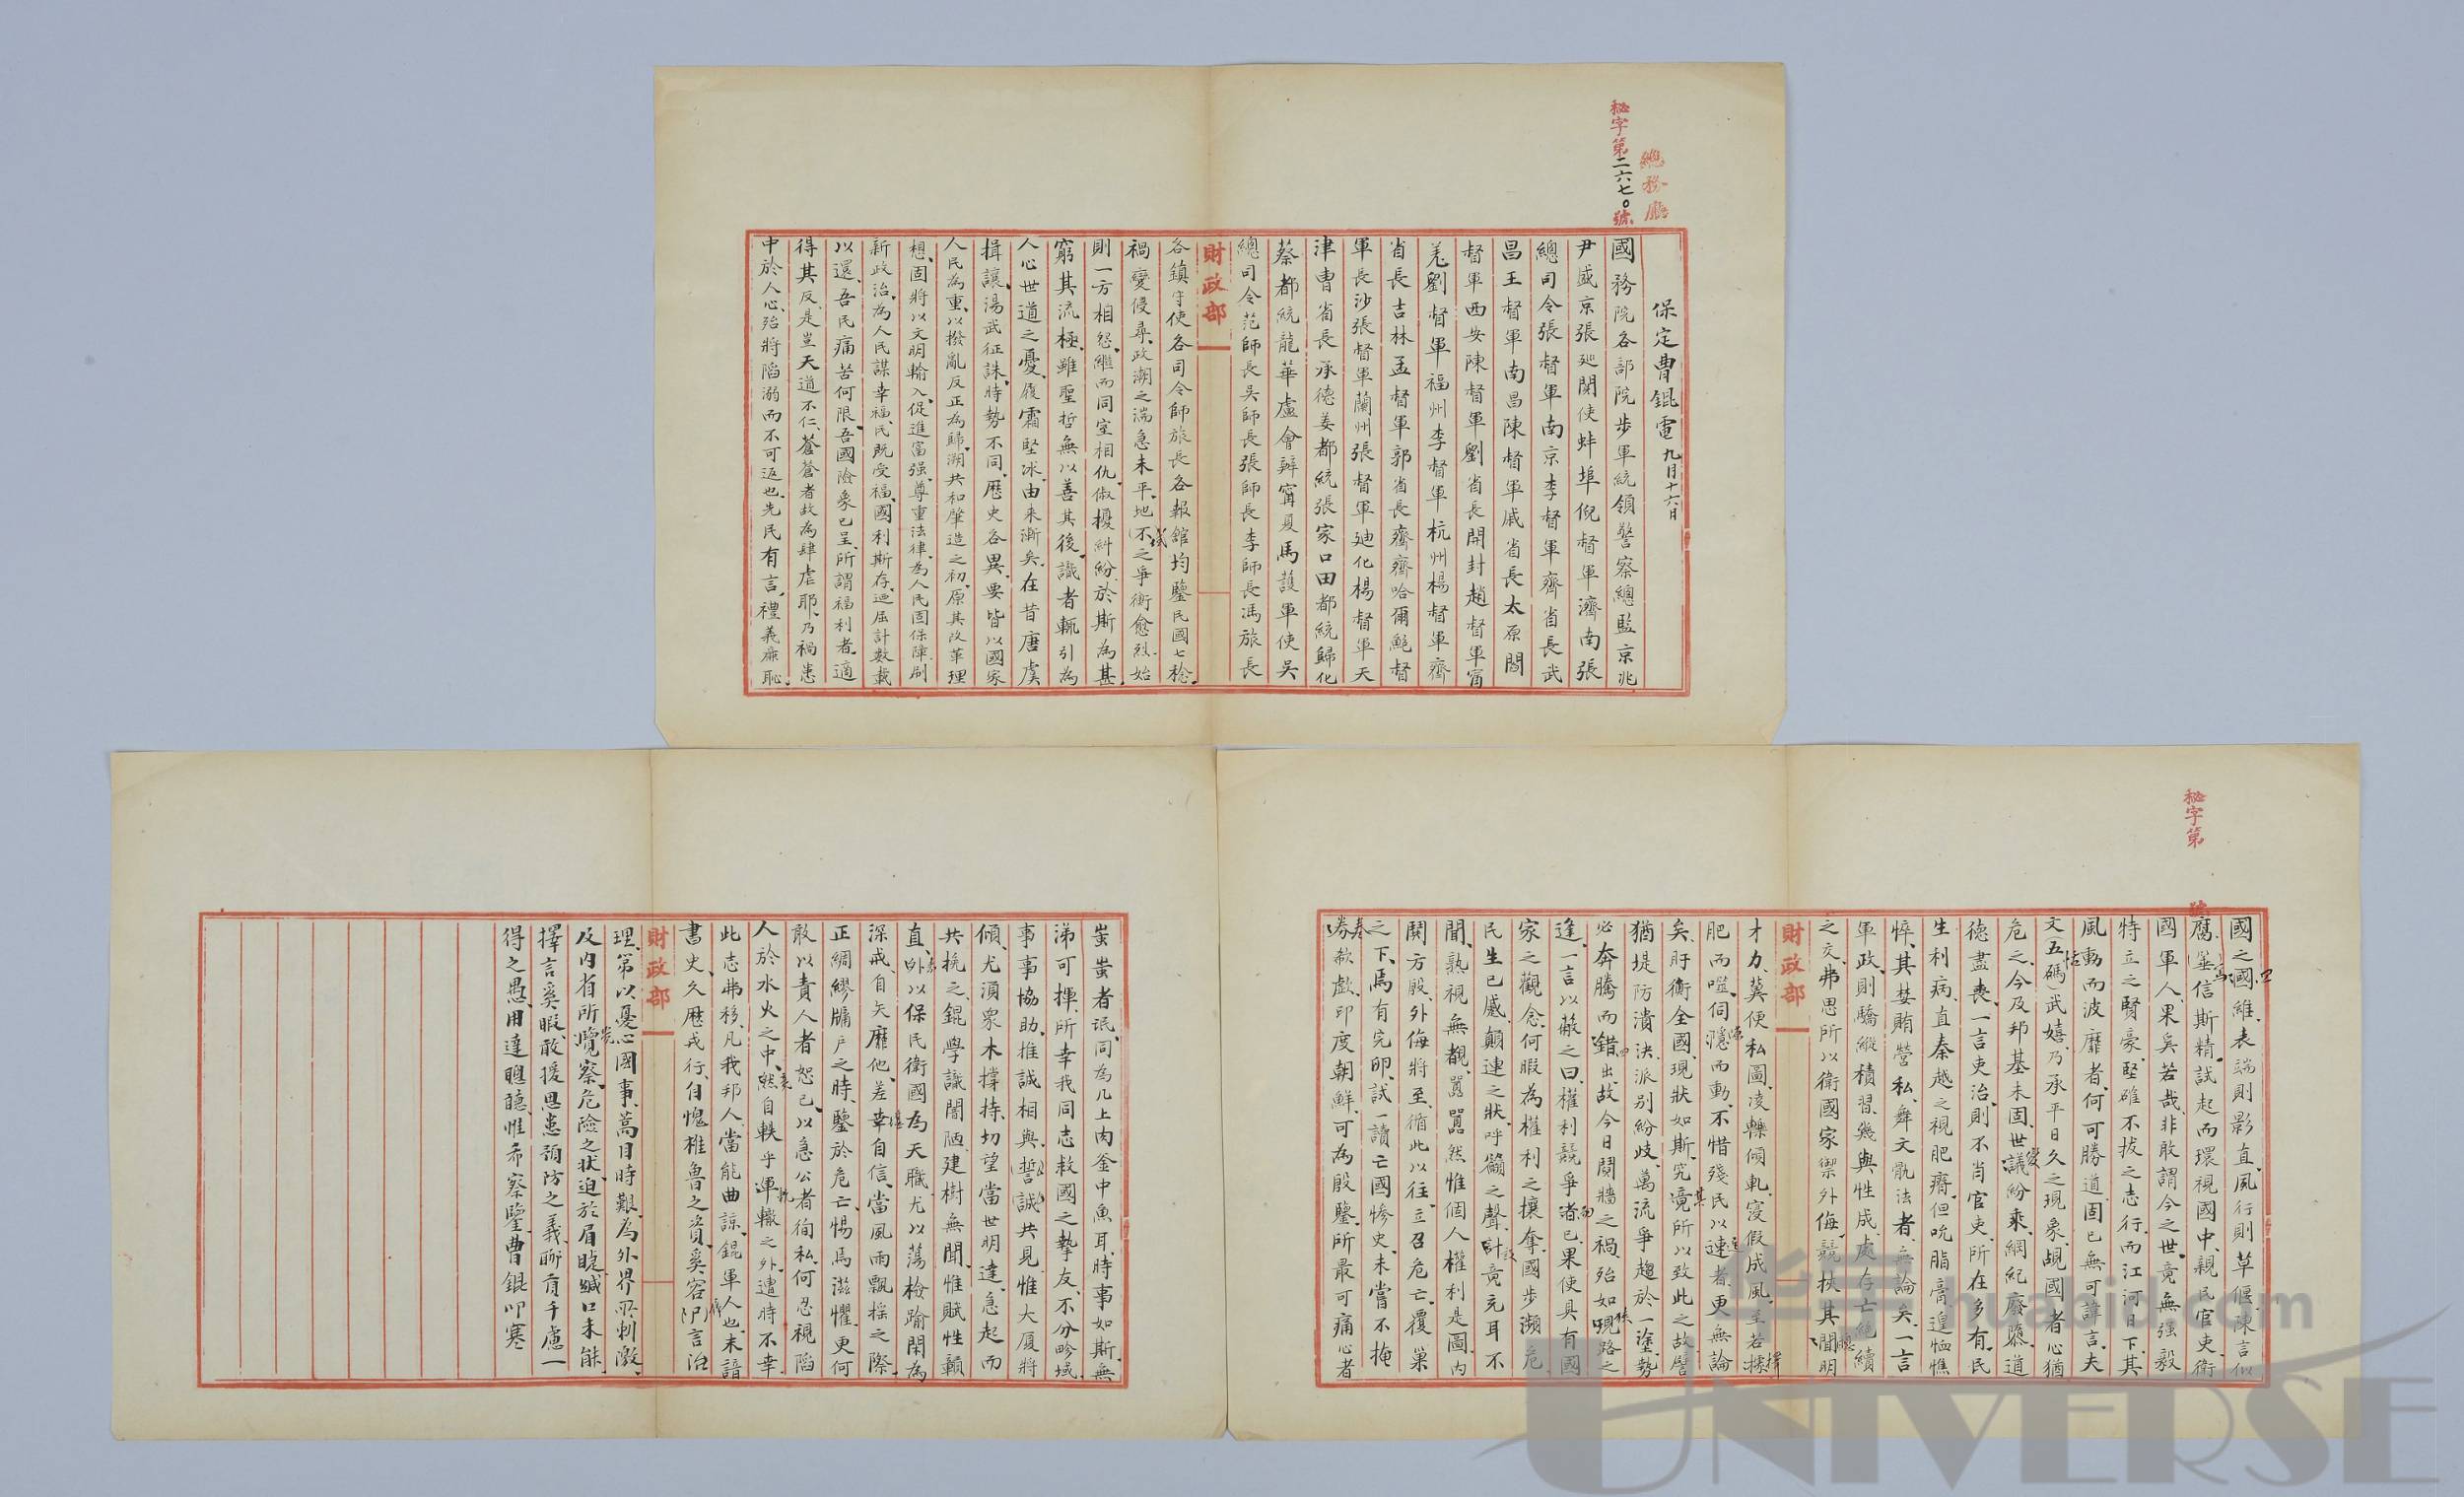 總務廳
秘字第二六七〇號
保定曹錕電九月十六日
國務院各部院步軍統領警察總監京兆
尹盛京張巡閱使蚌埠倪督軍濟南張
總司令張督軍南京李督軍齊省長武
昌王督軍南昌陳督軍戚省長太原閻
督軍西安陳督軍劉省長開封趙督軍甯
羗劉督軍福州李督軍杭州楊督軍齊
省長吉林孟督軍郭省長齊齊哈爾鮑督
軍長沙張督軍蘭州張督軍廸化楊督軍天
津曹省長承德姜都統張家口田都統歸化
蔡都統龍華盧會辦甯夏馬護軍使吳
總司令范師長吳師長張師長李師長馮旅長
財政部
各鎮守使各司令師旅長各報館均鑒民國七稔
禍變侵尋、政潮之湍急未平、地(不域之爭衡愈烈、始
則一方相怨、繼而同室相仇、俶擾糾紛、於斯為甚、
窮其流極、雖聖哲無以善其後、識者輒引為
人心世道之憂、履霜堅冰、由來漸矣、在昔唐虞
揖讓、湯武征誅、時勢不同、歷史各異、要皆以國家
人民為重、以撥亂反正為歸、溯共和肇造之初、原其改革理
想、固將以文明輸入、促進富强、尊重法律、為人民固保障、刷
新政治、為人民謀幸福、民既受福、國利斯存、廼屈計數載
以還、吾民痛苦何限、吾國險象已呈、所謂福利者、適
得其反、是豈天道不仁、蒼蒼者故為肆虐耶、乃禍患
中於人心、殆將陷溺而不可返也、先民有言、禮義廉恥、
秘字第 號
國之四維、表端則影直、風行則草偃、陳言似
腐、(塵焉信斯精、試起而環視國中、親民官吏、衛
國軍人、果矣若哉、非敢謂今之世、竟無强毅
特立之賢豪、堅確不拔之志行、而江河日下、其
風動而波靡者、何可勝道、固已無可諱言、夫
文恬五(碼)武嬉、乃承平日久之現象、覘國者心猶
危之、今及邦基未固、世變議紛乘、綱紀廢隳、道
德盡喪、一言吏治、則不肖官吏、所在多有、民
生利病、直秦越之視肥瘠、但吮脂膏、遑恤憔
悴、其婪賄營私、舞文骫法者、無論矣、一言
軍政、則驕縱積習、幾與性成、處存亡絕續
之交、弗思所以衛國家禦外侮、競挾其聰聞明
財政部
才力、冀便私圖、凌轢傾軋、寖假成風、至若擇據
肥而噬、伺隙隱而動、不惜殘民以逞速者、更無論
矣、盱衡全國、現狀如斯、究其竟所以致此之故、譬
猶堤防潰決、派別紛歧、萬流爭趨於一途、勢
必奔騰而四錯出、故今日鬩牆之禍、殆如狹現路之
逢、一言以蔽之曰、權利競爭而渚已、果使具有國
家之觀念、何暇為權利之攘奪、國步瀕危、
民生已感顛連之狀、呼籲之聲、計竟充耳不
聞、熟視無覩、囂囂然惟個人權利是圖、內
鬨方殷、外侮將至、循此以往、立召危亡、覆巢
之下、焉有完卵、試一讀亡國慘史、未嘗不掩
卷劵欷歔、印度朝鮮、可為殷鑒、所最可痛心者
蚩蚩者氓、同為几上肉、釜中魚耳、時事如斯、無
涕可揮、所幸我同志救國之摯友、不分畛域、
事事協助、推誠相與、(誓以)誠共見、惟大厦將
傾、尤須衆木撐持、切望當世明達、急起而
共挽之、錕學識闇陋、建樹無聞、惟賦性顓
直、素外以保民衛國為天職、尤以蕩檢踰閑為
深戒、自矢靡他、差堪幸自信、當風雨飄搖之際、
正綢繆牖戶之時、鑒於危亡、惕焉滋懼、更何
敢以責人者恕己、以急公者徇私、何忍視陷
人於水火之中、然自軼乎軍軌轍之外、遭時不幸
此志弗移、凡我邦人、當能曲諒、錕軍人也、未諳
書史、久歷戎行、自愧椎魯之資、奚容(叩序言治
財政部
理、第以憂心國事、蒿目時艱、為外界所刺激、
及內省所覺覽察、危險之狀、迫於眉睫、緘口未能、
擇言奚暇、敢援思患預防之義、聊貢千慮一
得之愚、用達聰聽、惟希察鑒、曹錕叩寒
华宇 huanid.com
UNIVERSE